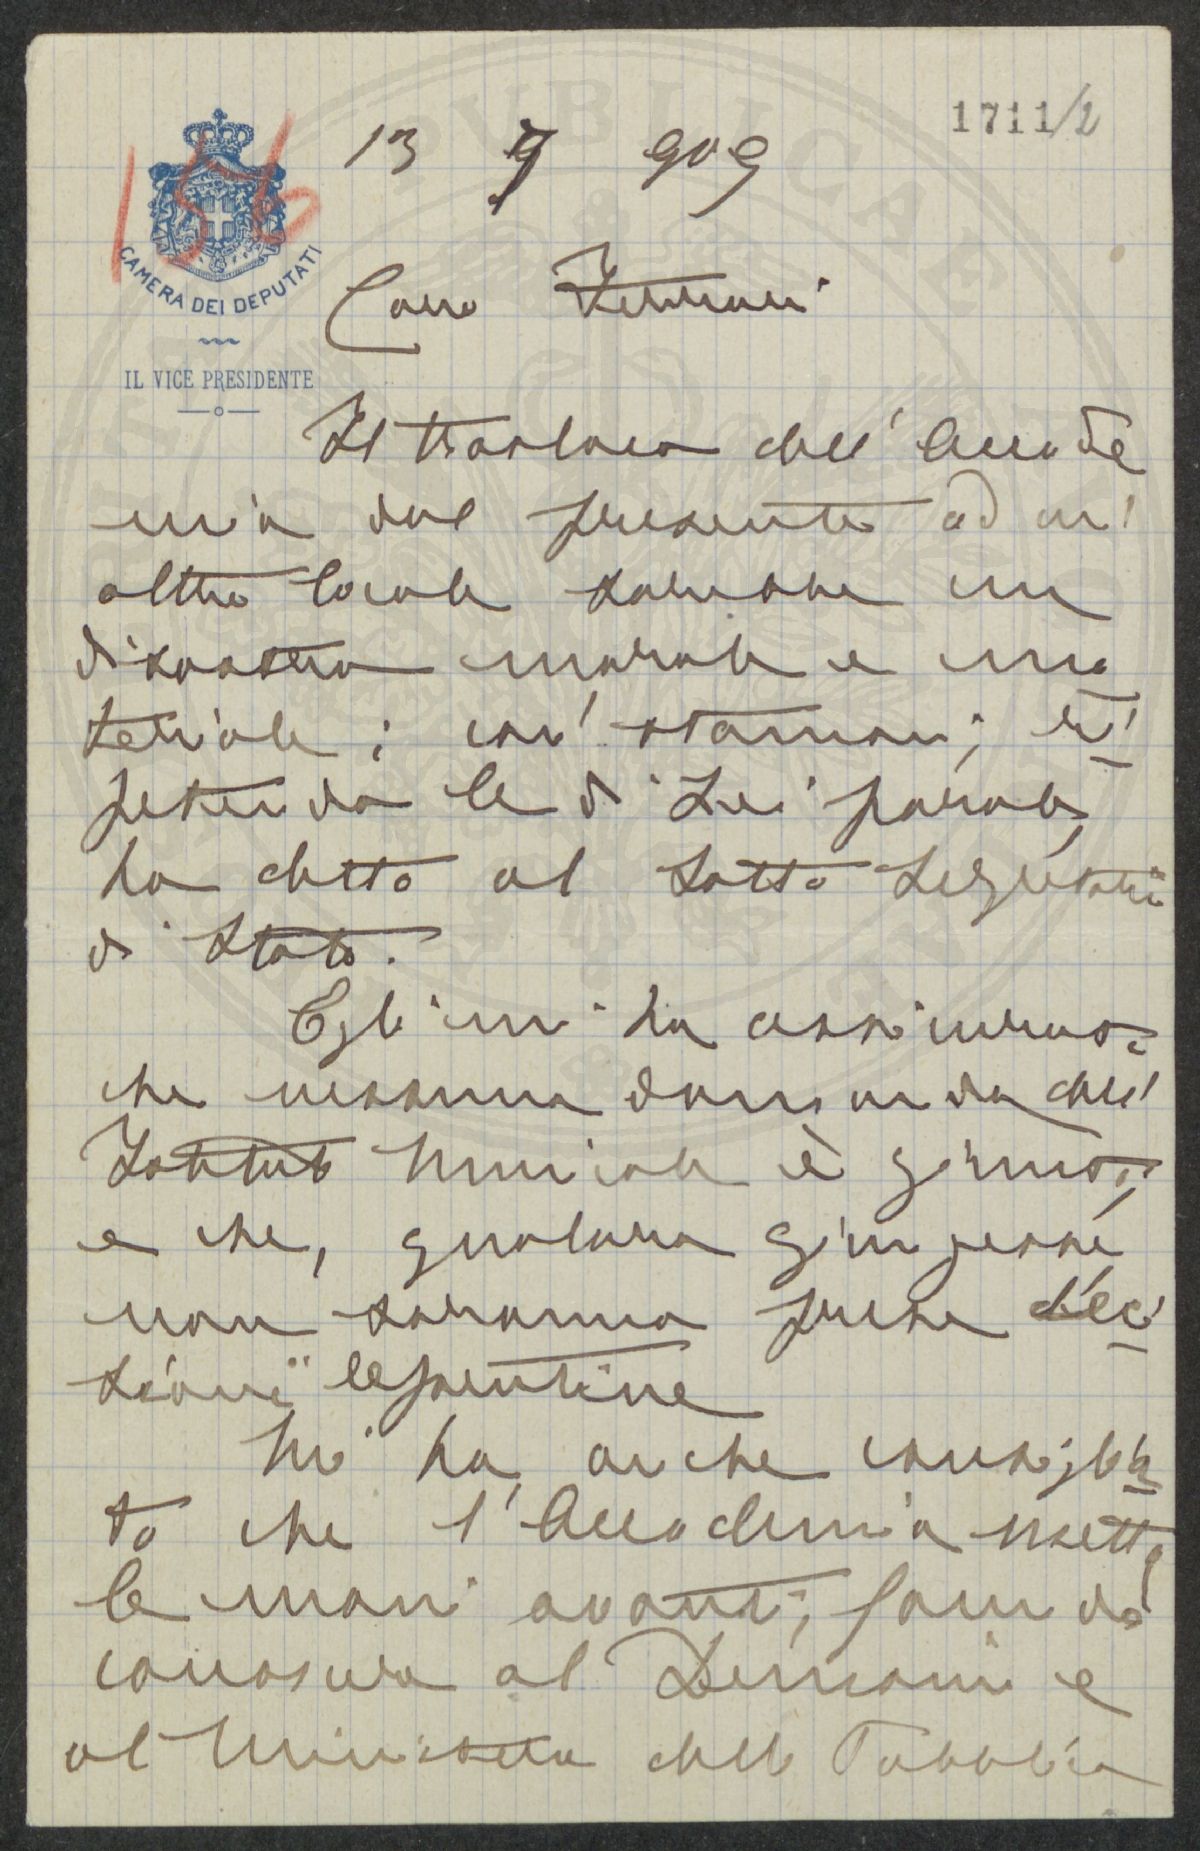 1711/2
156
13 9 909
CAMERA DEI DEPUTATI
IL VICE PRESIDENTE
Caro Ferrari
Il trasloco dell'Accade
mia dal presente ad un'
altro locale sarebbe un
disastro morale e ma
teriale; così stamani, ri
petendo le di Lei parole,
ho detto al Sotto Segretario
di Stato.
Egli mi ha assicurato
che nessuna domanda dell'
Istituto Musicale è giunta,
e che, qualora giungesse,
non saranno prese deci
sioni repentine
Mi ha anche consiglia
to che l'Accademia metta
le mani avanti, facendo
conoscere al Demanio e
al Ministero della Pubblica